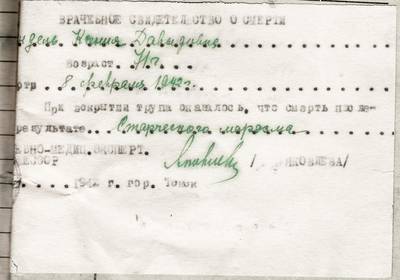 ВРАЧЕБНОЕ СВИДЕТЕЛЬСТВО О СМЕРТИ
ндель Ксения Давыдовна
возраст 71 г.
8 февраля 1942 г.
При вскрытии трупа оказалось, что смерть после-
результате Старческого маразма
ЕБНО-МЕДИЦ.ЭКСПЕРТ.
ФЕССОР /ЯКОВЛЕВА/
194 г. гор. Томск